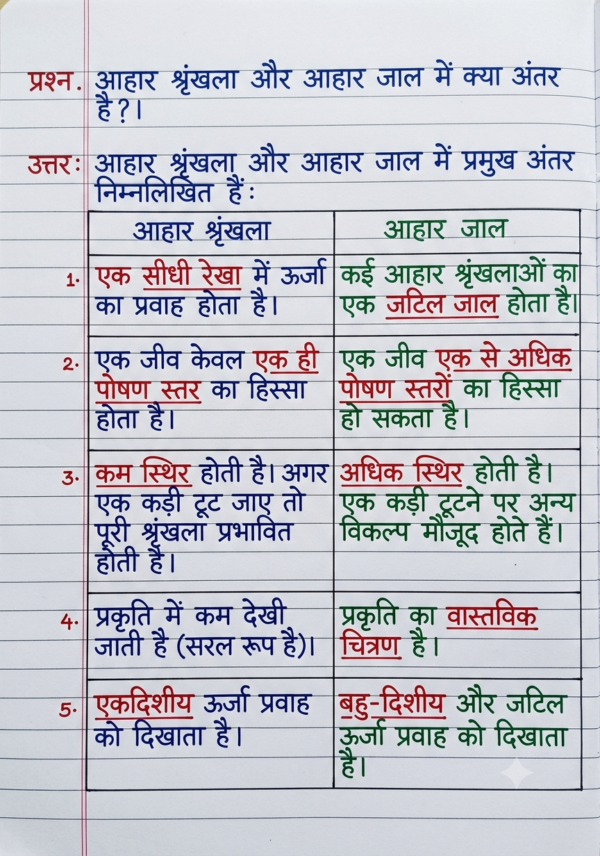 प्रश्न. आहार श्रृंखला और आहार जाल में क्या अंतर
है?।
उत्तर: आहार श्रृंखला और आहार जाल में प्रमुख अंतर
निम्नलिखित हैं:
आहार श्रृंखला
आहार जाल
1. एक सीधी रेखा में ऊर्जा
का प्रवाह होता है।
कई आहार श्रृंखलाओं का
एक जटिल जाल होता है।
2. एक जीव केवल एक ही
पोषण स्तर का हिस्सा
होता है।
एक जीव एक से अधिक
पोषण स्तरों का हिस्सा
हो सकता है।
3. कम स्थिर होती है। अगर
एक कड़ी टूट जाए तो
पूरी श्रृंखला प्रभावित
होती है।
अधिक स्थिर होती है।
एक कड़ी टूटने पर अन्य
विकल्प मौजूद होते हैं।
4. प्रकृति में कम देखी
जाती है (सरल रूप है)।
प्रकृति का वास्तविक
चित्रण है।
5. एकदिशीय ऊर्जा प्रवाह
को दिखाता है।
बहु-दिशीय और जटिल
ऊर्जा प्रवाह को दिखाता
है।